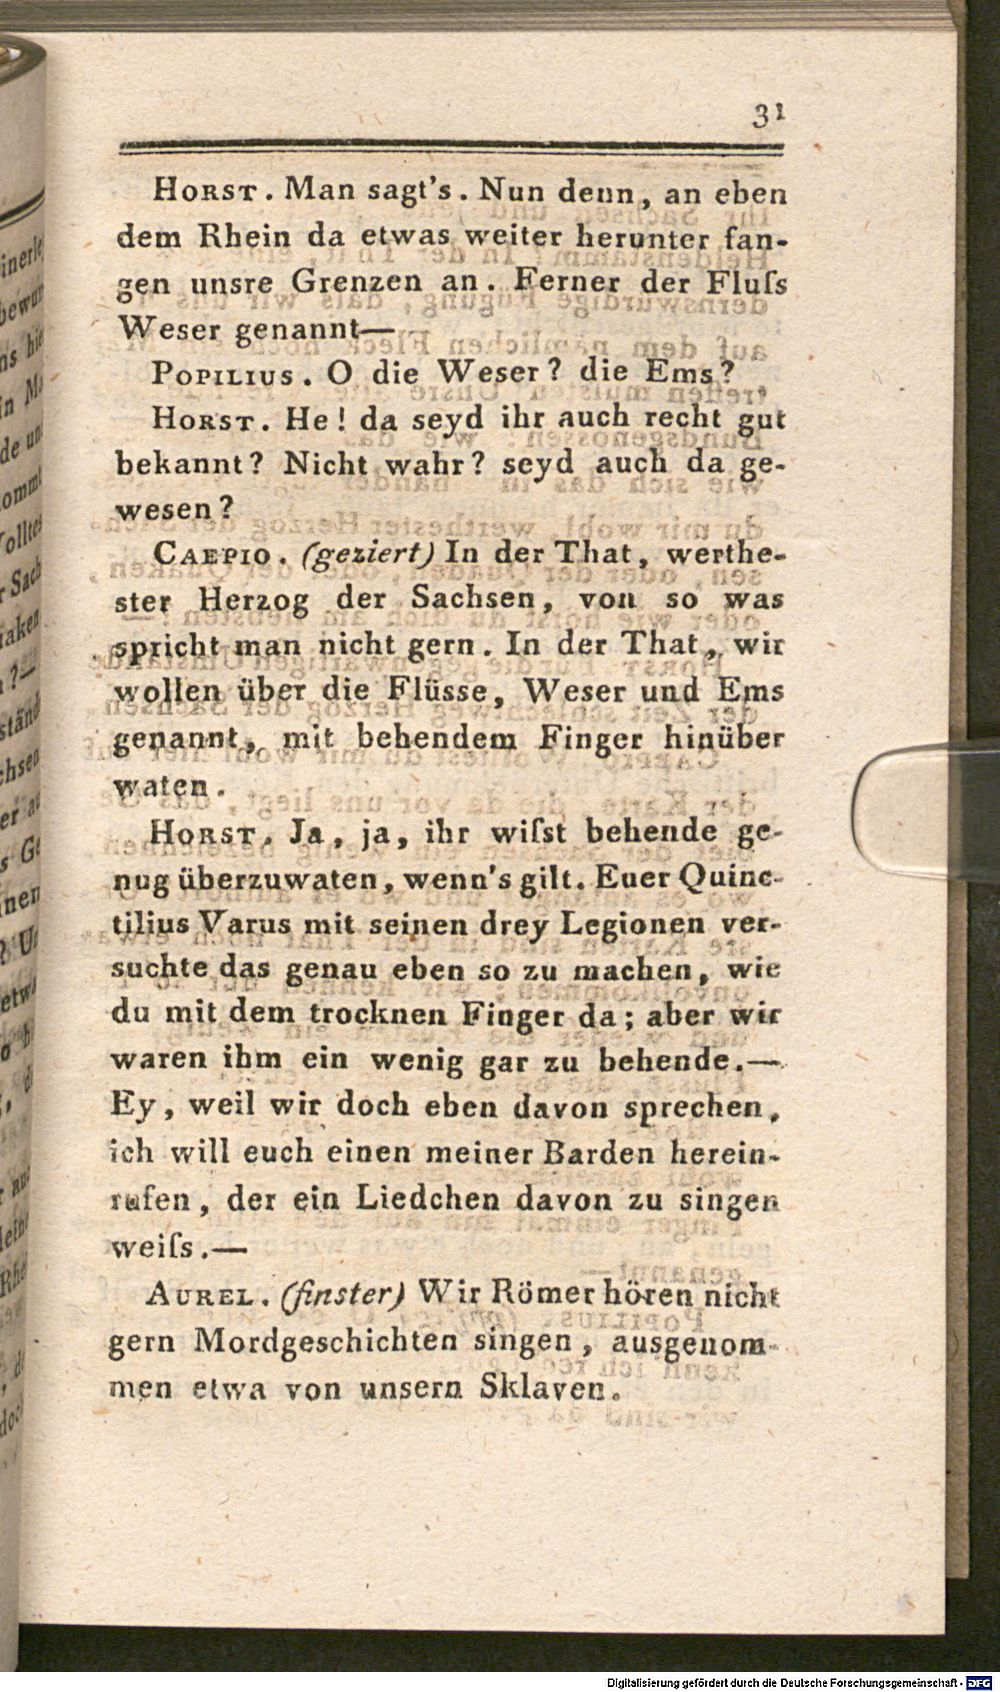 31
HORST. Man sagt's. Nun denn, an eben
dem Rhein da etwas weiter herunter fan-
gen unsre Grenzen an. Ferner der Fluſs
Weser genannt—
POPILIUS. O die Weser? die Ems?
HORST. He! da seyd ihr auch recht gut
bekannt? Nicht wahr? seyd auch da ge-
wesen?
CAEPIO. (geziert) In der That, werthe-
ster Herzog der Sachsen, von so was
spricht man nicht gern. In der That, wir
wollen über die Flüsse, Weser und Ems
genannt, mit behendem Finger hinüber
waten.
HORST. Ja, ja, ihr wiſst behende ge-
nug überzuwaten, wenn's gilt. Euer Quinc-
tilius Varus mit seinen drey Legionen ver-
suchte das genau eben so zu machen, wie
du mit dem trocknen Finger da; aber wir
waren ihm ein wenig gar zu behende.—
Ey, weil wir doch eben davon sprechen,
ich will euch einen meiner Barden herein-
rufen, der ein Liedchen davon zu singen
weiſs.—
AUREL. (finster) Wir Römer hören nicht
gern Mordgeschichten singen, ausgenom-
men etwa von unsern Sklaven.
Digitalisierung gefördert durch die Deutsche Forschungsgemeinschaft - DFG